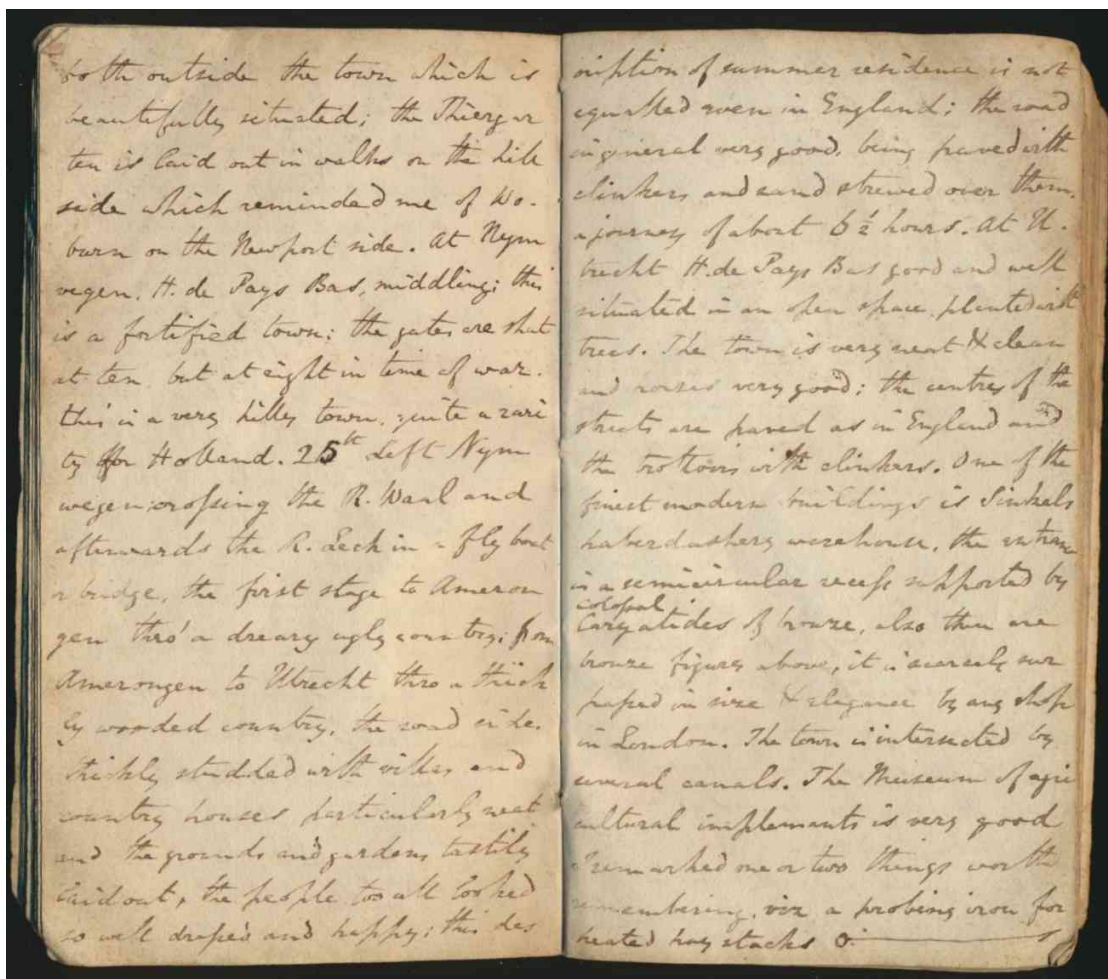 both outside the town which is
beautifully situated; the Thiergar
ten is laid out in walks on the hill
side which reminded me of Wo-
burn on the Newport side. At Nym
wegen, H. de Pays Bas, middling; this
is a fortified town; the gates are shut
at ten, but at eight in time of war.
this is a very hilly town, quite a rari
ty for Holland. 25th Left Nym
wegen crossing the R. Waal and
afterwards the R. Leck in a fly boat
a bridge, the first stage to Ameron
gen thro' a dreary ugly country; from
Amerongen to Utrecht thro a thick
ly wooded country, the road side
thickly studded with villas and
country houses particularly neat
and the grounds and gardens tastily
laid out, the people too all looked
so well dressed and happy; this des
cription of summer residence is not
equalled even in England; the road
in general very good, being paved with
clinkers and sand strewed over them.
a journey of about 6 1/2 hours. At U-
trecht H. de Pays Bas good and well
situated in an open space planted with
trees. The town is very neat & clean
and very good; the centres of the
streets are paved as in England and
the trottoirs with clinkers. One of the
finest modern buildings is Sinkels
haberdashery warehouse, the entrance
is a semicircular recess supported by
colossal
Caryatides of bronze, also there are
bronze figures above, it is scarcely sur
passed in size & elegance by any shop
in London. The town is intersected by
several canals. The Museum of agri
cultural implements is very good
I remarked one or two things worth
remembering, viz a probing iron for
heated hay stacks